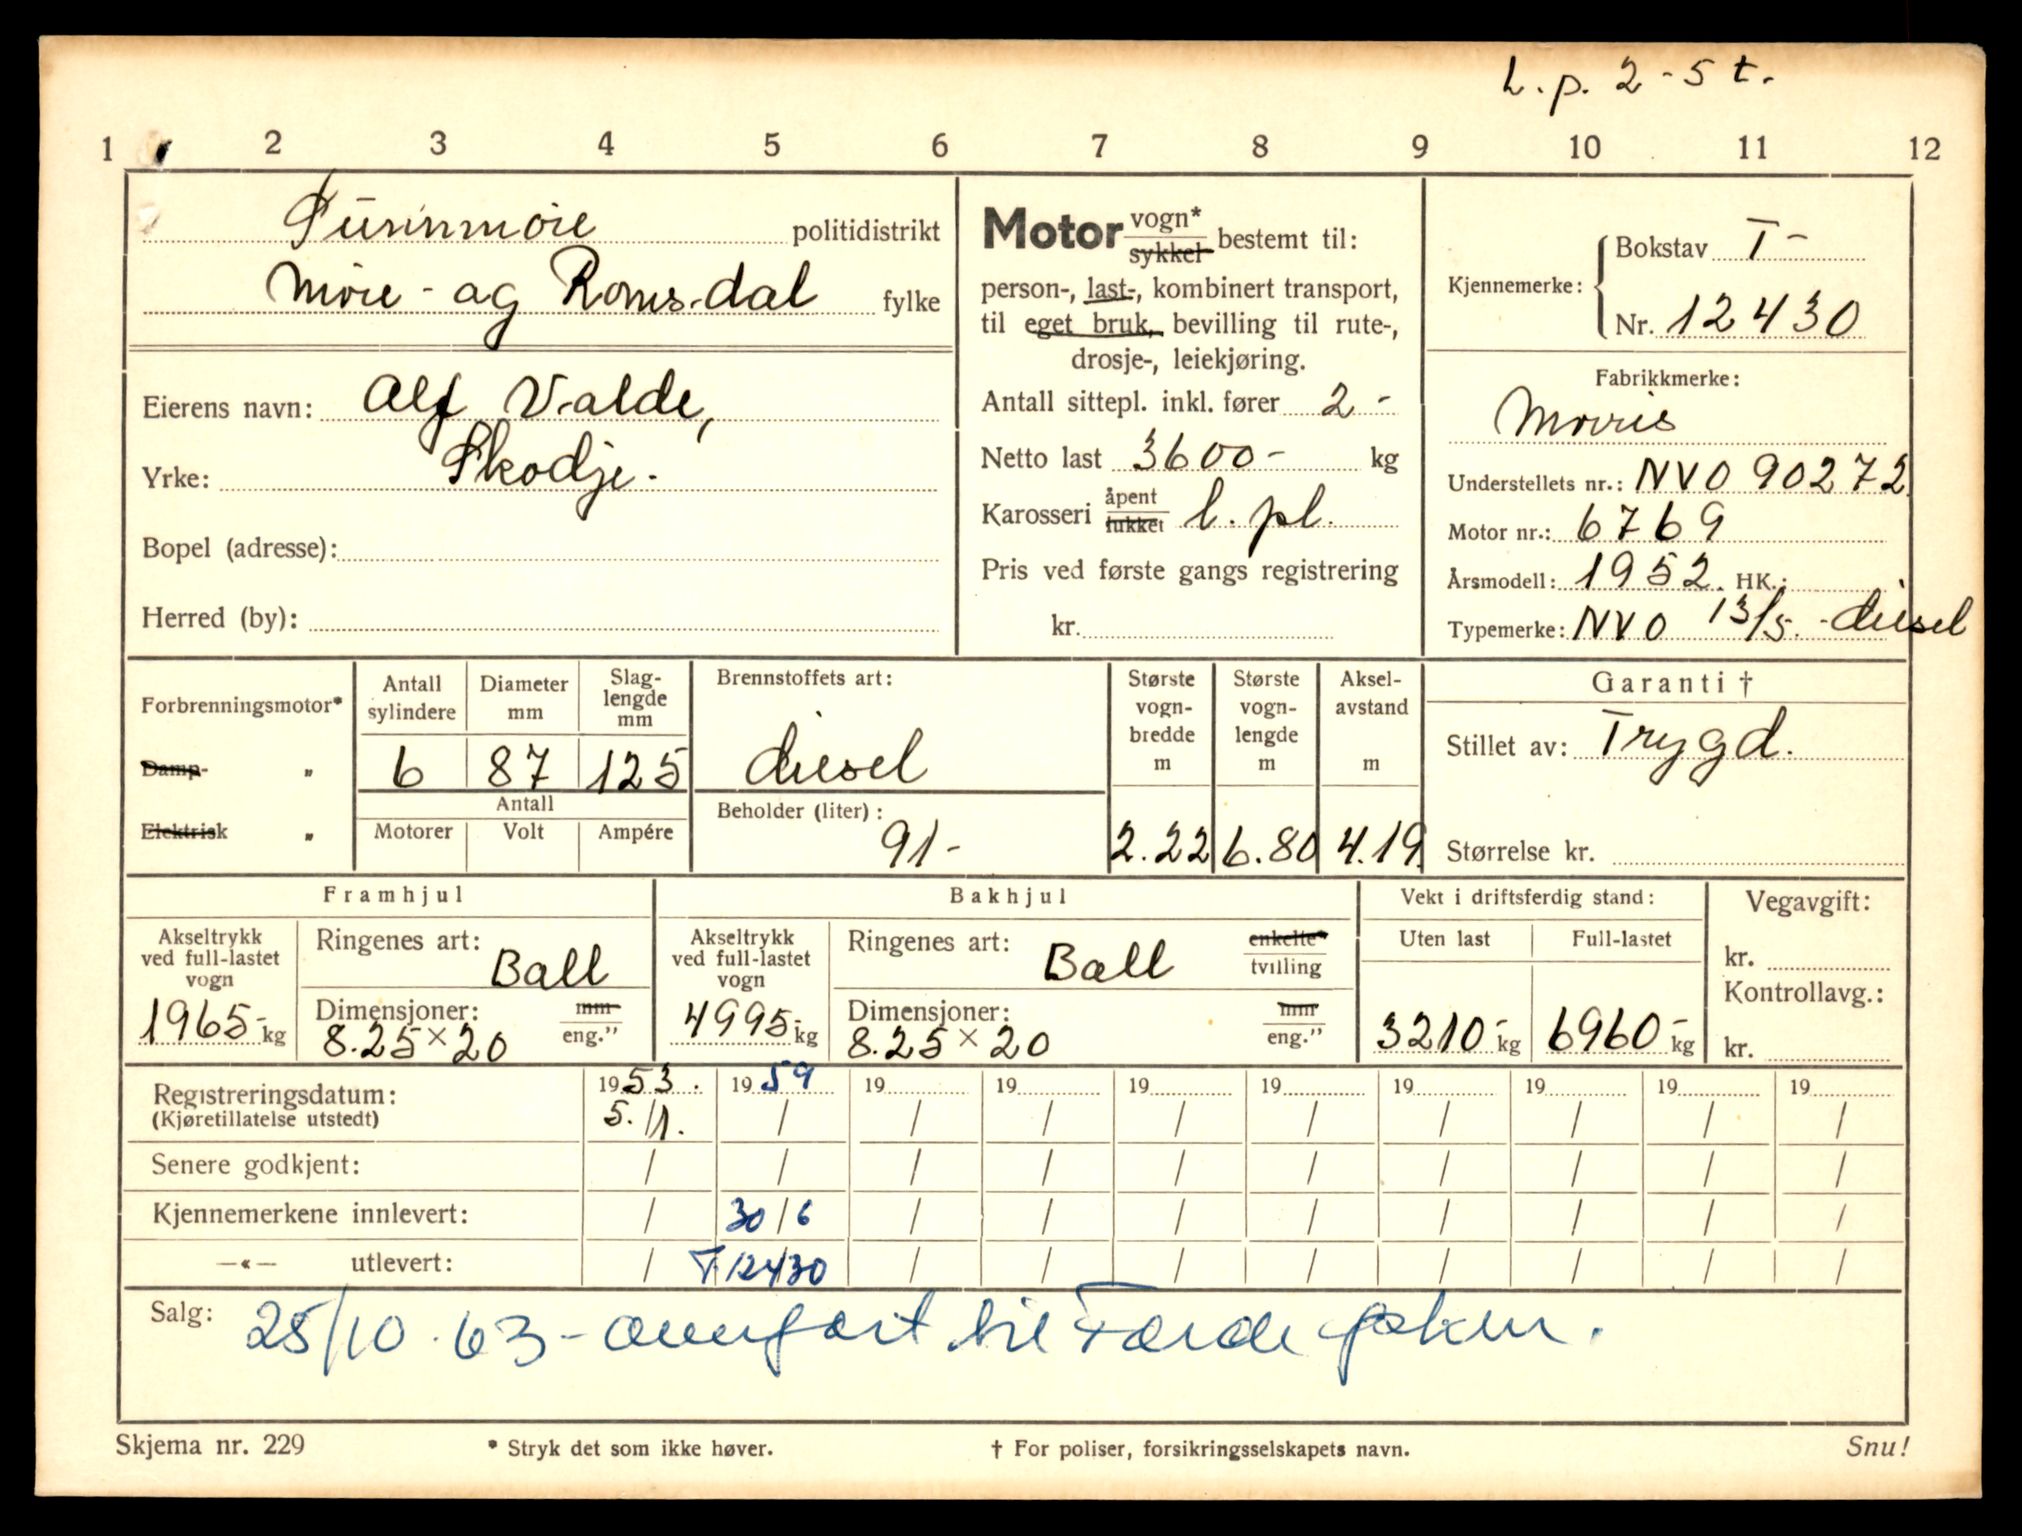 L.p. 2-5 t.
1 2 3 4 5 6 7 8 9 10 11 12
Sunnmøre politidistrikt
Møre- og Romsdal fylke
Eierens navn: Alf Valde,
Yrke: Skodje.
Bopel (adresse):
Herred (by):
Motor vogn* sykkel bestemt til:
person-, last-, kombinert transport,
til eget bruk, bevilling til rute-,
drosje-, leiekjøring.
Antall sittepl. inkl. fører 2 -
Netto last 3600- kg
Karosseri åpent lukket l. pl.
Pris ved første gangs registrering
kr.
Kjennemerke: Bokstav T-
Nr. 12430
Fabrikkmerke:
Morris
Understellets nr.: NVO 90272
Motor nr.: 6769
Årsmodell: 1952. HK.:
Typemerke: NVO 13/5. -diesel
Forbrenningsmotor*
Damp- "
Elektrisk "
Antall sylindere Diameter mm Slaglengde mm
6 87 125
Antall
Motorer Volt Ampére
Brennstoffets art:
diesel
Beholder (liter):
91-
Største vognbredde m
2.22
Største vognlengde m
6.80
Akselavstand m
4.19
Garanti †
Stillet av: Trygd.
Størrelse kr.
Framhjul
Akseltrykk ved full-lastet vogn
1965- kg
Ringenes art: Ball
Dimensjoner: mm eng."
8.25 × 20
Bakhjul
Akseltrykk ved full-lastet vogn
4995- kg
Ringenes art: Ball enkelte* tvilling
Dimensjoner: mm eng."
8.25 × 20
Vekt i driftsferdig stand:
Uten last Full-lastet
3210- kg 6960- kg
Vegavgift:
kr.
Kontrollavg.:
kr.
Registreringsdatum: 1953. 1959 19 19 19 19 19 19 19 19
(Kjøretillatelse utstedt) 5./1. / / / / / / / / /
Senere godkjent: / / / / / / / / / /
Kjennemerkene innlevert: / 30/6 / / / / / / / /
—«— utlevert: / T.12430 / / / / / / / /
Salg: 25/10.63- overført til Førde
Skjema nr. 229 * Stryk det som ikke høver. † For poliser, forsikringsselskapets navn. Snu!